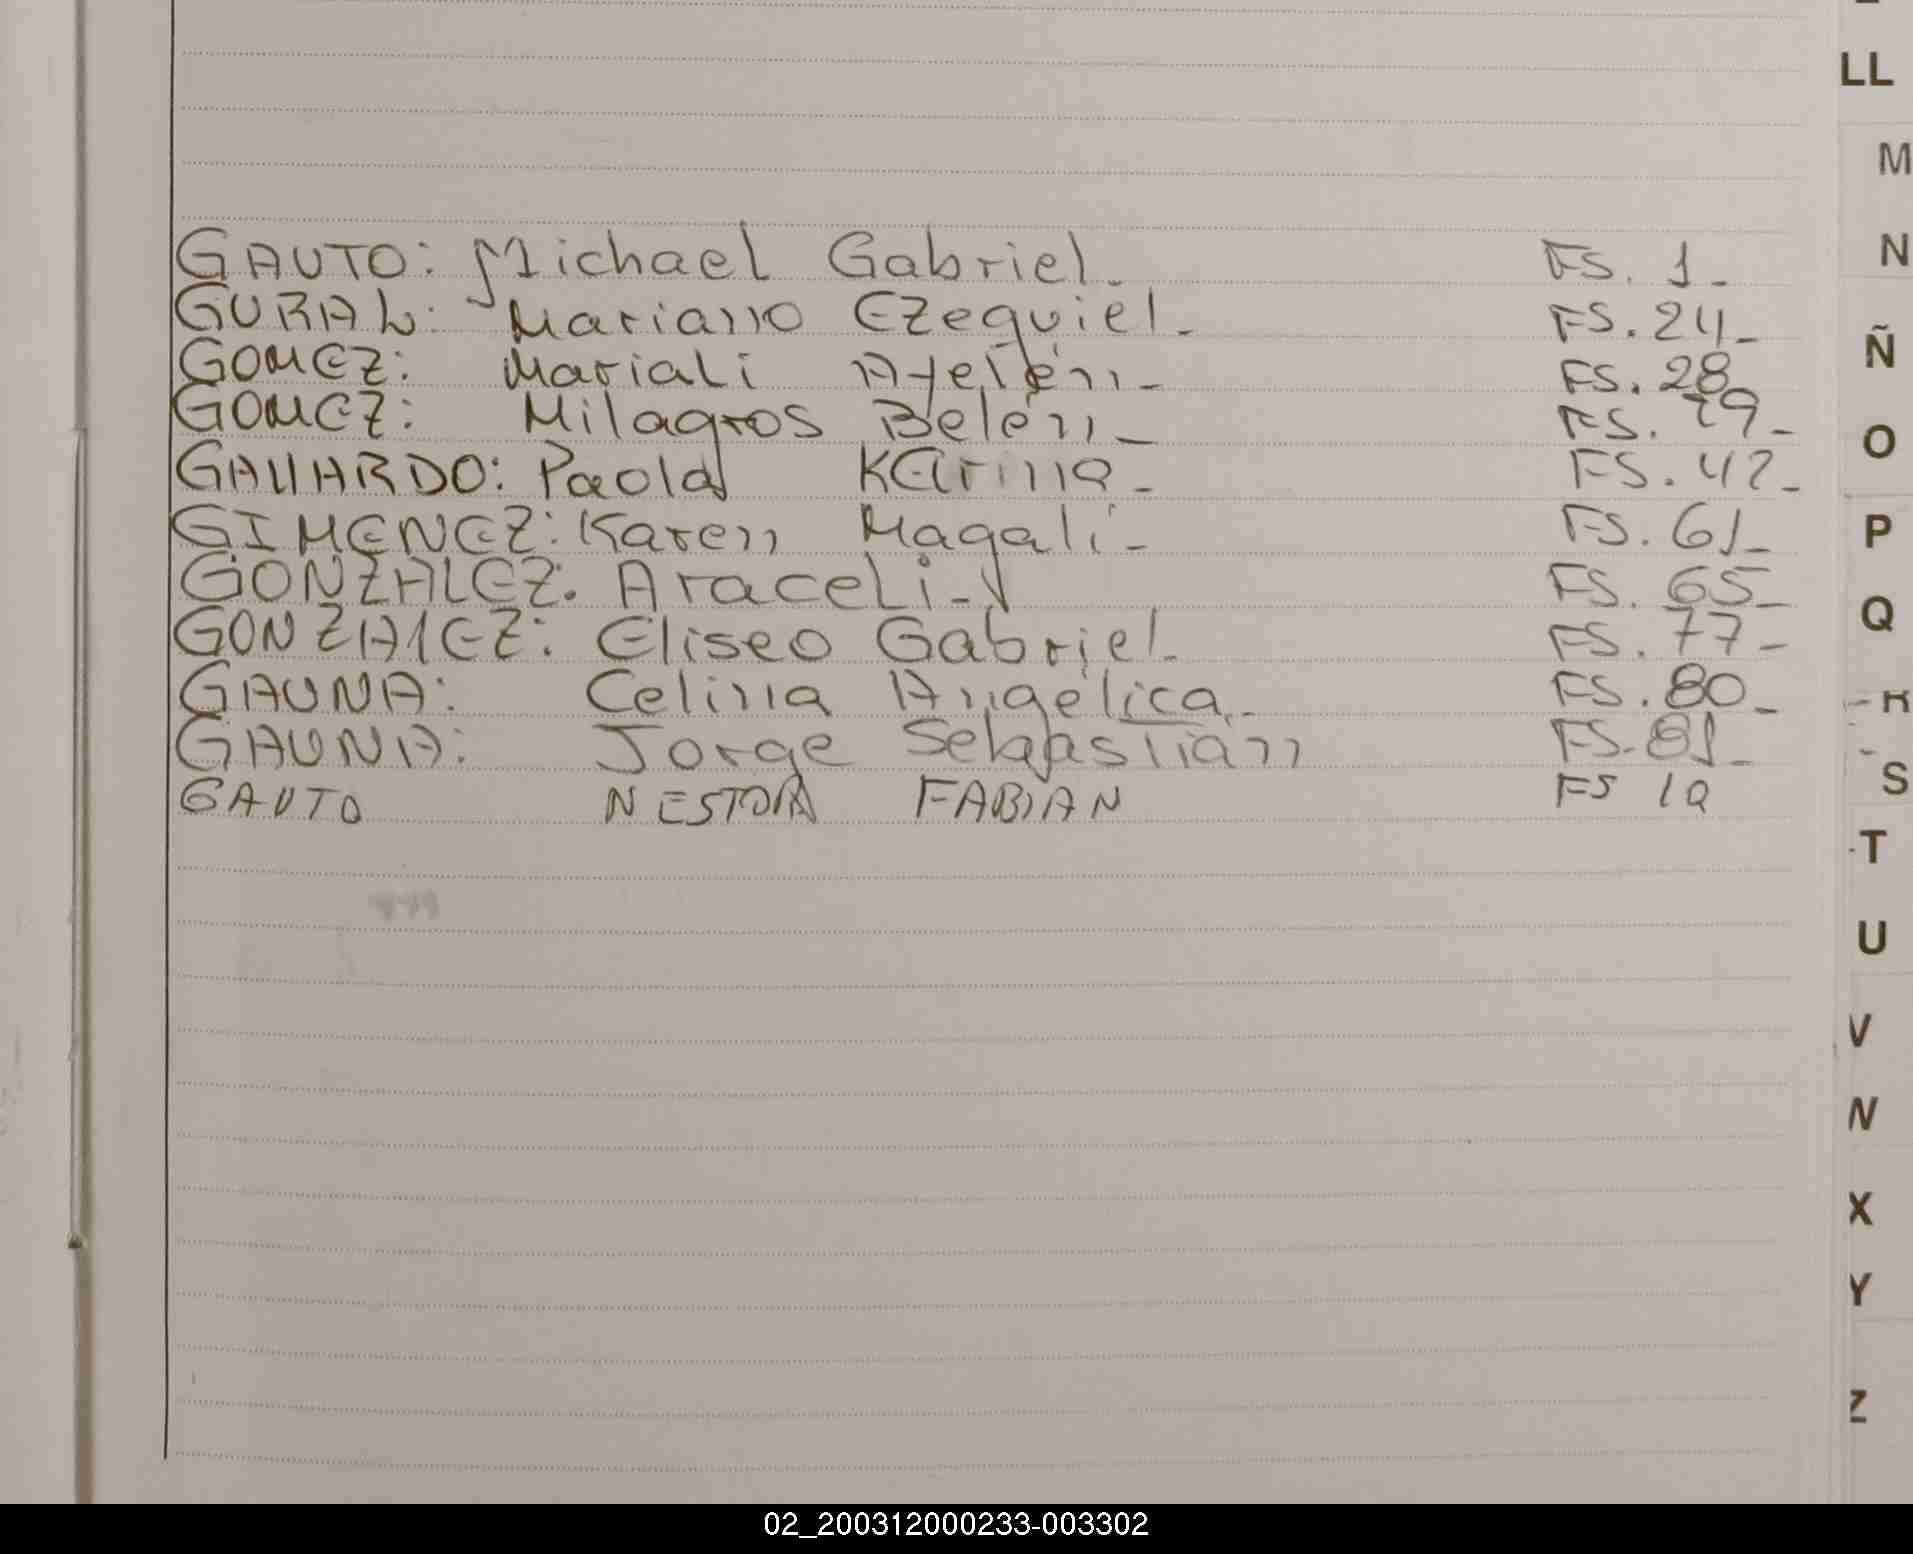 GAUTO: Michael Gabriel. FS. 1_
GURAL: Mariano Ezequiel_ FS. 24_
GOMEZ: Mariali Ayelén_ FS. 28
GOMEZ: Milagros Belén_ FS. 29_
GALLARDO: Paola Karina_ FS. 42_
GIMENEZ: Karen Magali_ FS. 61_
GONZALEZ. Araceli_ FS. 65_
GONZALEZ: Eliseo Gabriel_ FS. 77_
GAUNA: Celina Angélica_ FS. 80_
GAUNA: Jorge Sebastián FS. 81_
GAUTO NESTOR FABIAN FS
LL
M
N
Ñ
O
P
Q
R
S
T
U
V
W
X
Y
Z
02_200312000233-003302